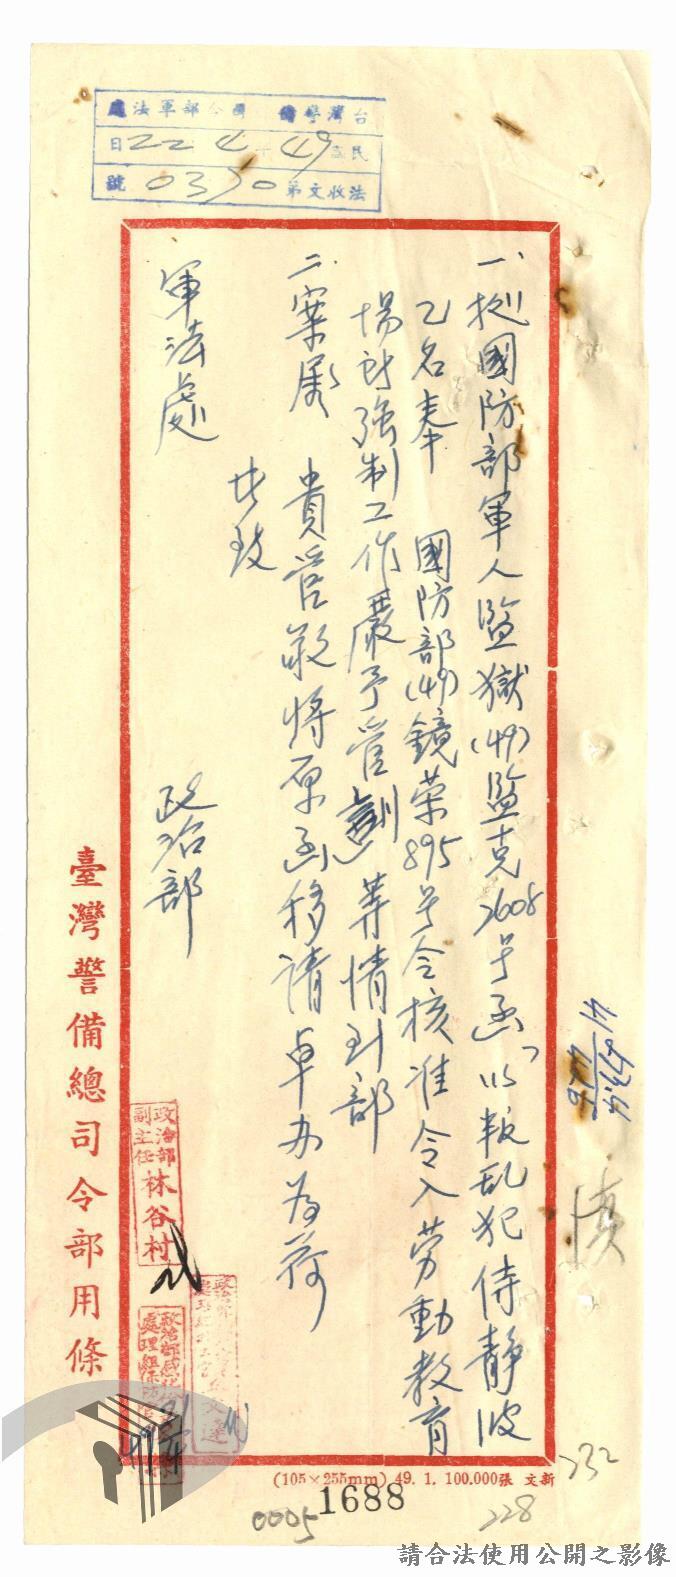 台灣警備 司令部軍法處
民國49年4 22日
法收文第0390號
一、据國防部軍人監獄(49)監克2608号函「以叛乱犯侍静波
乙名奉 國防部(49)鏡荣895号令核准令入劳動教育
場所強制工作嚴予管訓」等情到部
二、案屬 貴管敬將原函移請卓办為荷
此致
軍法處
政治部
政治部
副主任 林谷村
臺灣警備總司令部用條
(105×255mm) 49. 1. 100.000張 文新
1688
0005
228
232
請合法使用公開之影像